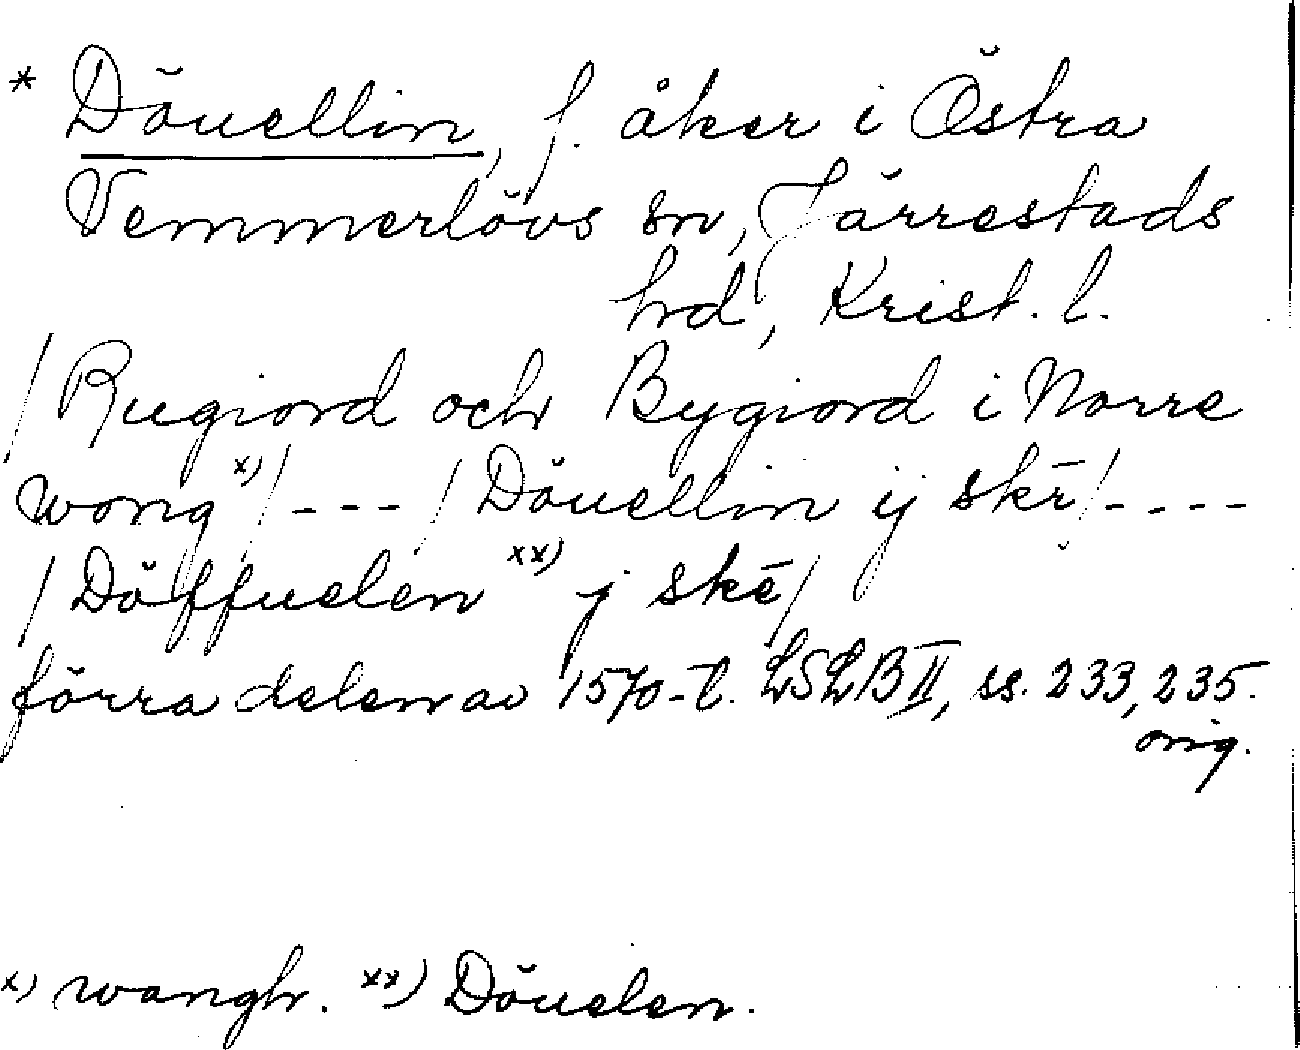 * Döuellin, f. åker i Östra
Vemmerlövs sn, Järrestads
hd, Krist. l.
/Rugiord och Bygiord i Norre
wong x)/---/Döuellin ij skē/----
/Döffuelen xx) j skē/
förra delen av 1570-t. LSLB II, ss. 233, 235.
orig.
x) wangh. xx) Döuelen.